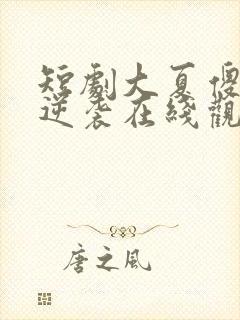 短劇大夏傻
逆袭在綫觀
唐之风